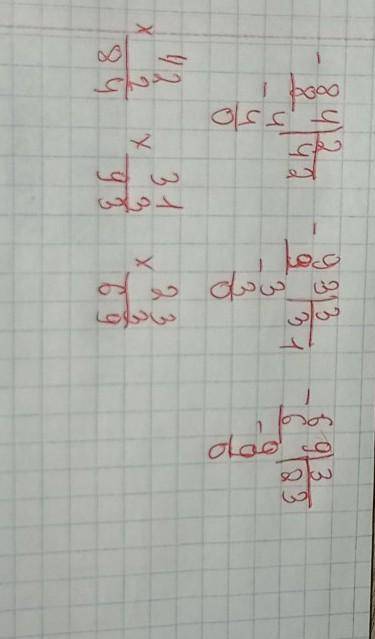 - 84|2 - 93|3 - 69|3
8 |42 9 |31 6 |23
- 4 - 3 - 9
4 3 9
0 0 0
× 42 × 31 × 23
2 3 3
84 93 69